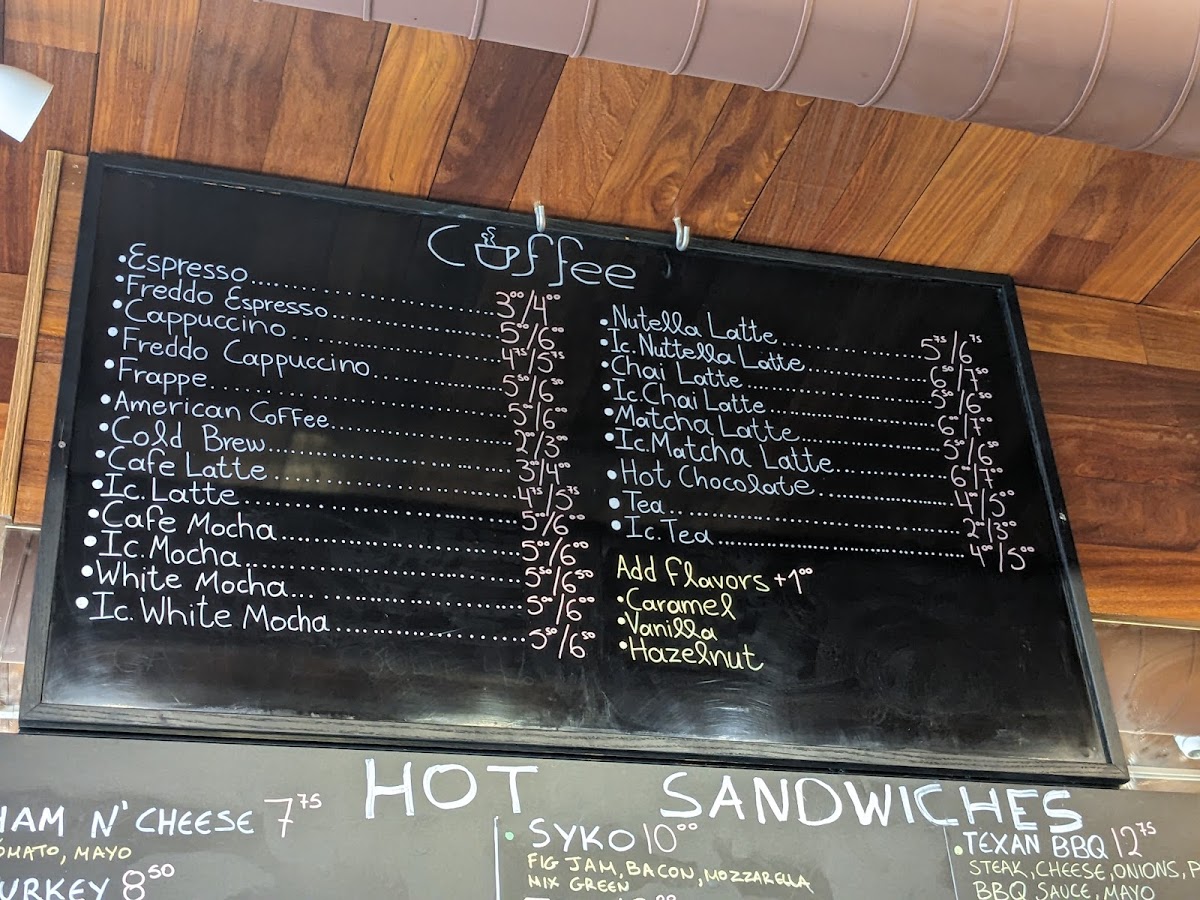 Coffee
•Espresso 3⁰⁰/4⁰⁰
•Freddo Espresso 5⁰⁰/6⁰⁰
•Cappuccino 4⁷⁵/5⁷⁵
•Freddo Cappuccino 5⁵⁰/6⁵⁰
•Frappe 5⁰⁰/6⁰⁰
•American Coffee 2⁰⁰/3⁰⁰
•Cold Brew 3⁰⁰/4⁰⁰
•Cafe Latte 4⁷⁵/5⁷⁵
•Ic. Latte 5⁰⁰/6⁰⁰
•Cafe Mocha 5⁰⁰/6⁰⁰
•Ic. Mocha 5⁵⁰/6⁵⁰
•White Mocha 5⁰⁰/6⁰⁰
•Ic. White Mocha 5⁵⁰/6⁵⁰
•Nutella Latte 5⁷⁵/6⁷⁵
•Ic. Nuttella Latte 6⁵⁰/7⁵⁰
•Chai Latte 5⁵⁰/6⁵⁰
•Ic. Chai Latte 6⁰⁰/7⁰⁰
•Matcha Latte 5⁵⁰/6⁵⁰
•Ic. Matcha Latte 6⁰⁰/7⁰⁰
•Hot Chocolate 4⁰⁰/5⁰⁰
•Tea 2⁰⁰/3⁰⁰
•Ic. Tea 4⁰⁰/5⁰⁰
Add Flavors +1⁰⁰
•Caramel
•Vanilla
•Hazelnut
HOT SANDWICHES
HAM N' CHEESE 7⁷⁵
TOMATO, MAYO
TURKEY 8⁵⁰
•SYKO 10⁰⁰
FIG JAM, BACON, MOZZARELLA
MIX GREEN
•TEXAN BBQ 12⁷⁵
STEAK, CHEESE, ONIONS, P
BBQ SAUCE, MAYO